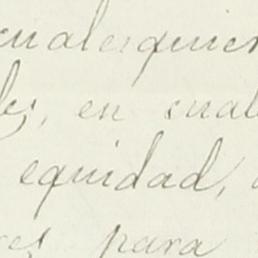 cualesquier
les, en cual
equidad,
res para